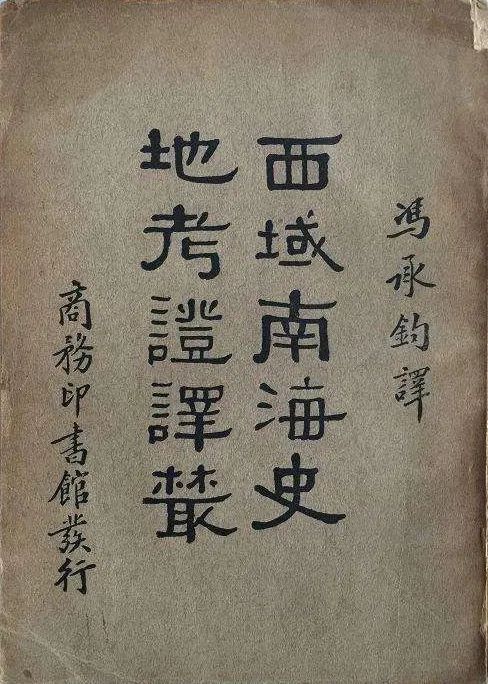 馮承鈞譯
西域南海史
地考證譯叢
商務印書館發行